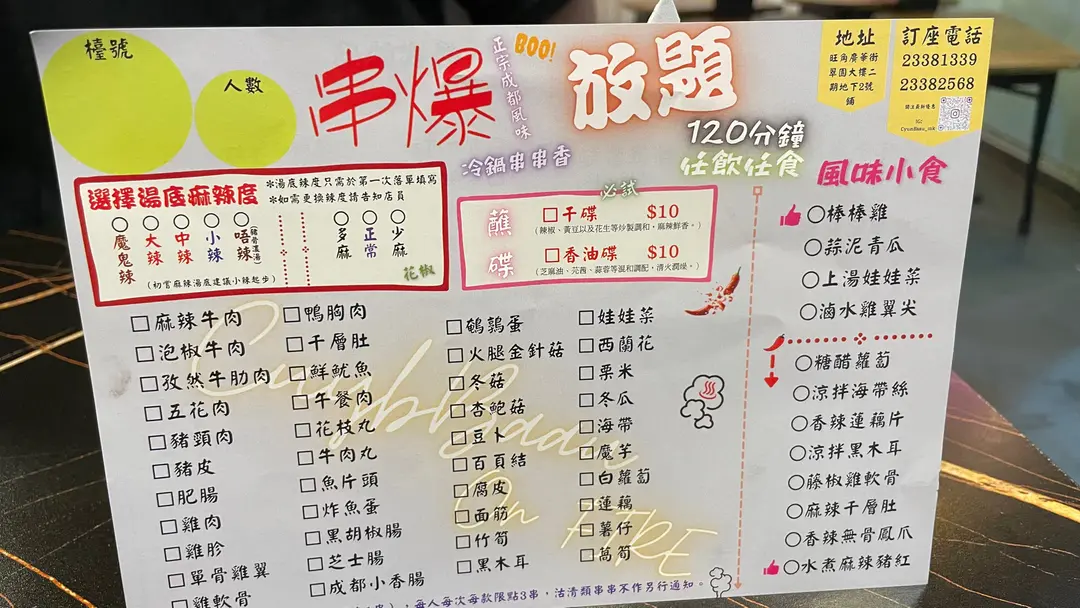 檯號
人數
串爆
正宗成都風味
BOO!
放題
120分鐘
任飲任食
冷鍋串串香
地址
旺角廣華街
翠園大樓二
期地下2號
舖
訂座電話
23381339
23382568
IG:
選擇湯底麻辣度
*湯底辣度只需於第一次落單填寫
*如需更換辣度請告知店員
魔鬼辣
大辣
中辣
小辣
唔辣
多麻
正常
少麻
花椒
(初嘗麻辣湯底建議小辣起步)
必試
蘸碟
干碟 $10
(辣椒、黃豆以及花生等炒製調和,麻辣鮮香。)
香油碟 $10
(芝麻油、芫茜、蒜蓉等混和調配,清火潤燥。)
麻辣牛肉
泡椒牛肉
孜然牛肋肉
五花肉
豬頸肉
豬皮
肥腸
雞肉
雞胗
單骨雞翼
雞軟骨
鴨胸肉
千層肚
鮮魷魚
午餐肉
花枝丸
牛肉丸
魚片頭
炸魚蛋
黑胡椒腸
芝士腸
成都小香腸
鵪鶉蛋
火腿金針菇
冬菇
杏鮑菇
豆卜
百頁結
腐皮
面筋
竹筍
黑木耳
娃娃菜
西蘭花
粟米
冬瓜
海帶
魔芋
白蘿蔔
蓮藕
薯仔
萵筍
風味小食
棒棒雞
蒜泥青瓜
上湯娃娃菜
滷水雞翼尖
糖醋蘿蔔
涼拌海帶絲
香辣蓮藕片
涼拌黑木耳
藤椒雞軟骨
麻辣千層肚
香辣無骨鳳爪
水煮麻辣豬紅
On FIRE
,每人每次每款限點3串,沽清類串串不作另行通知。